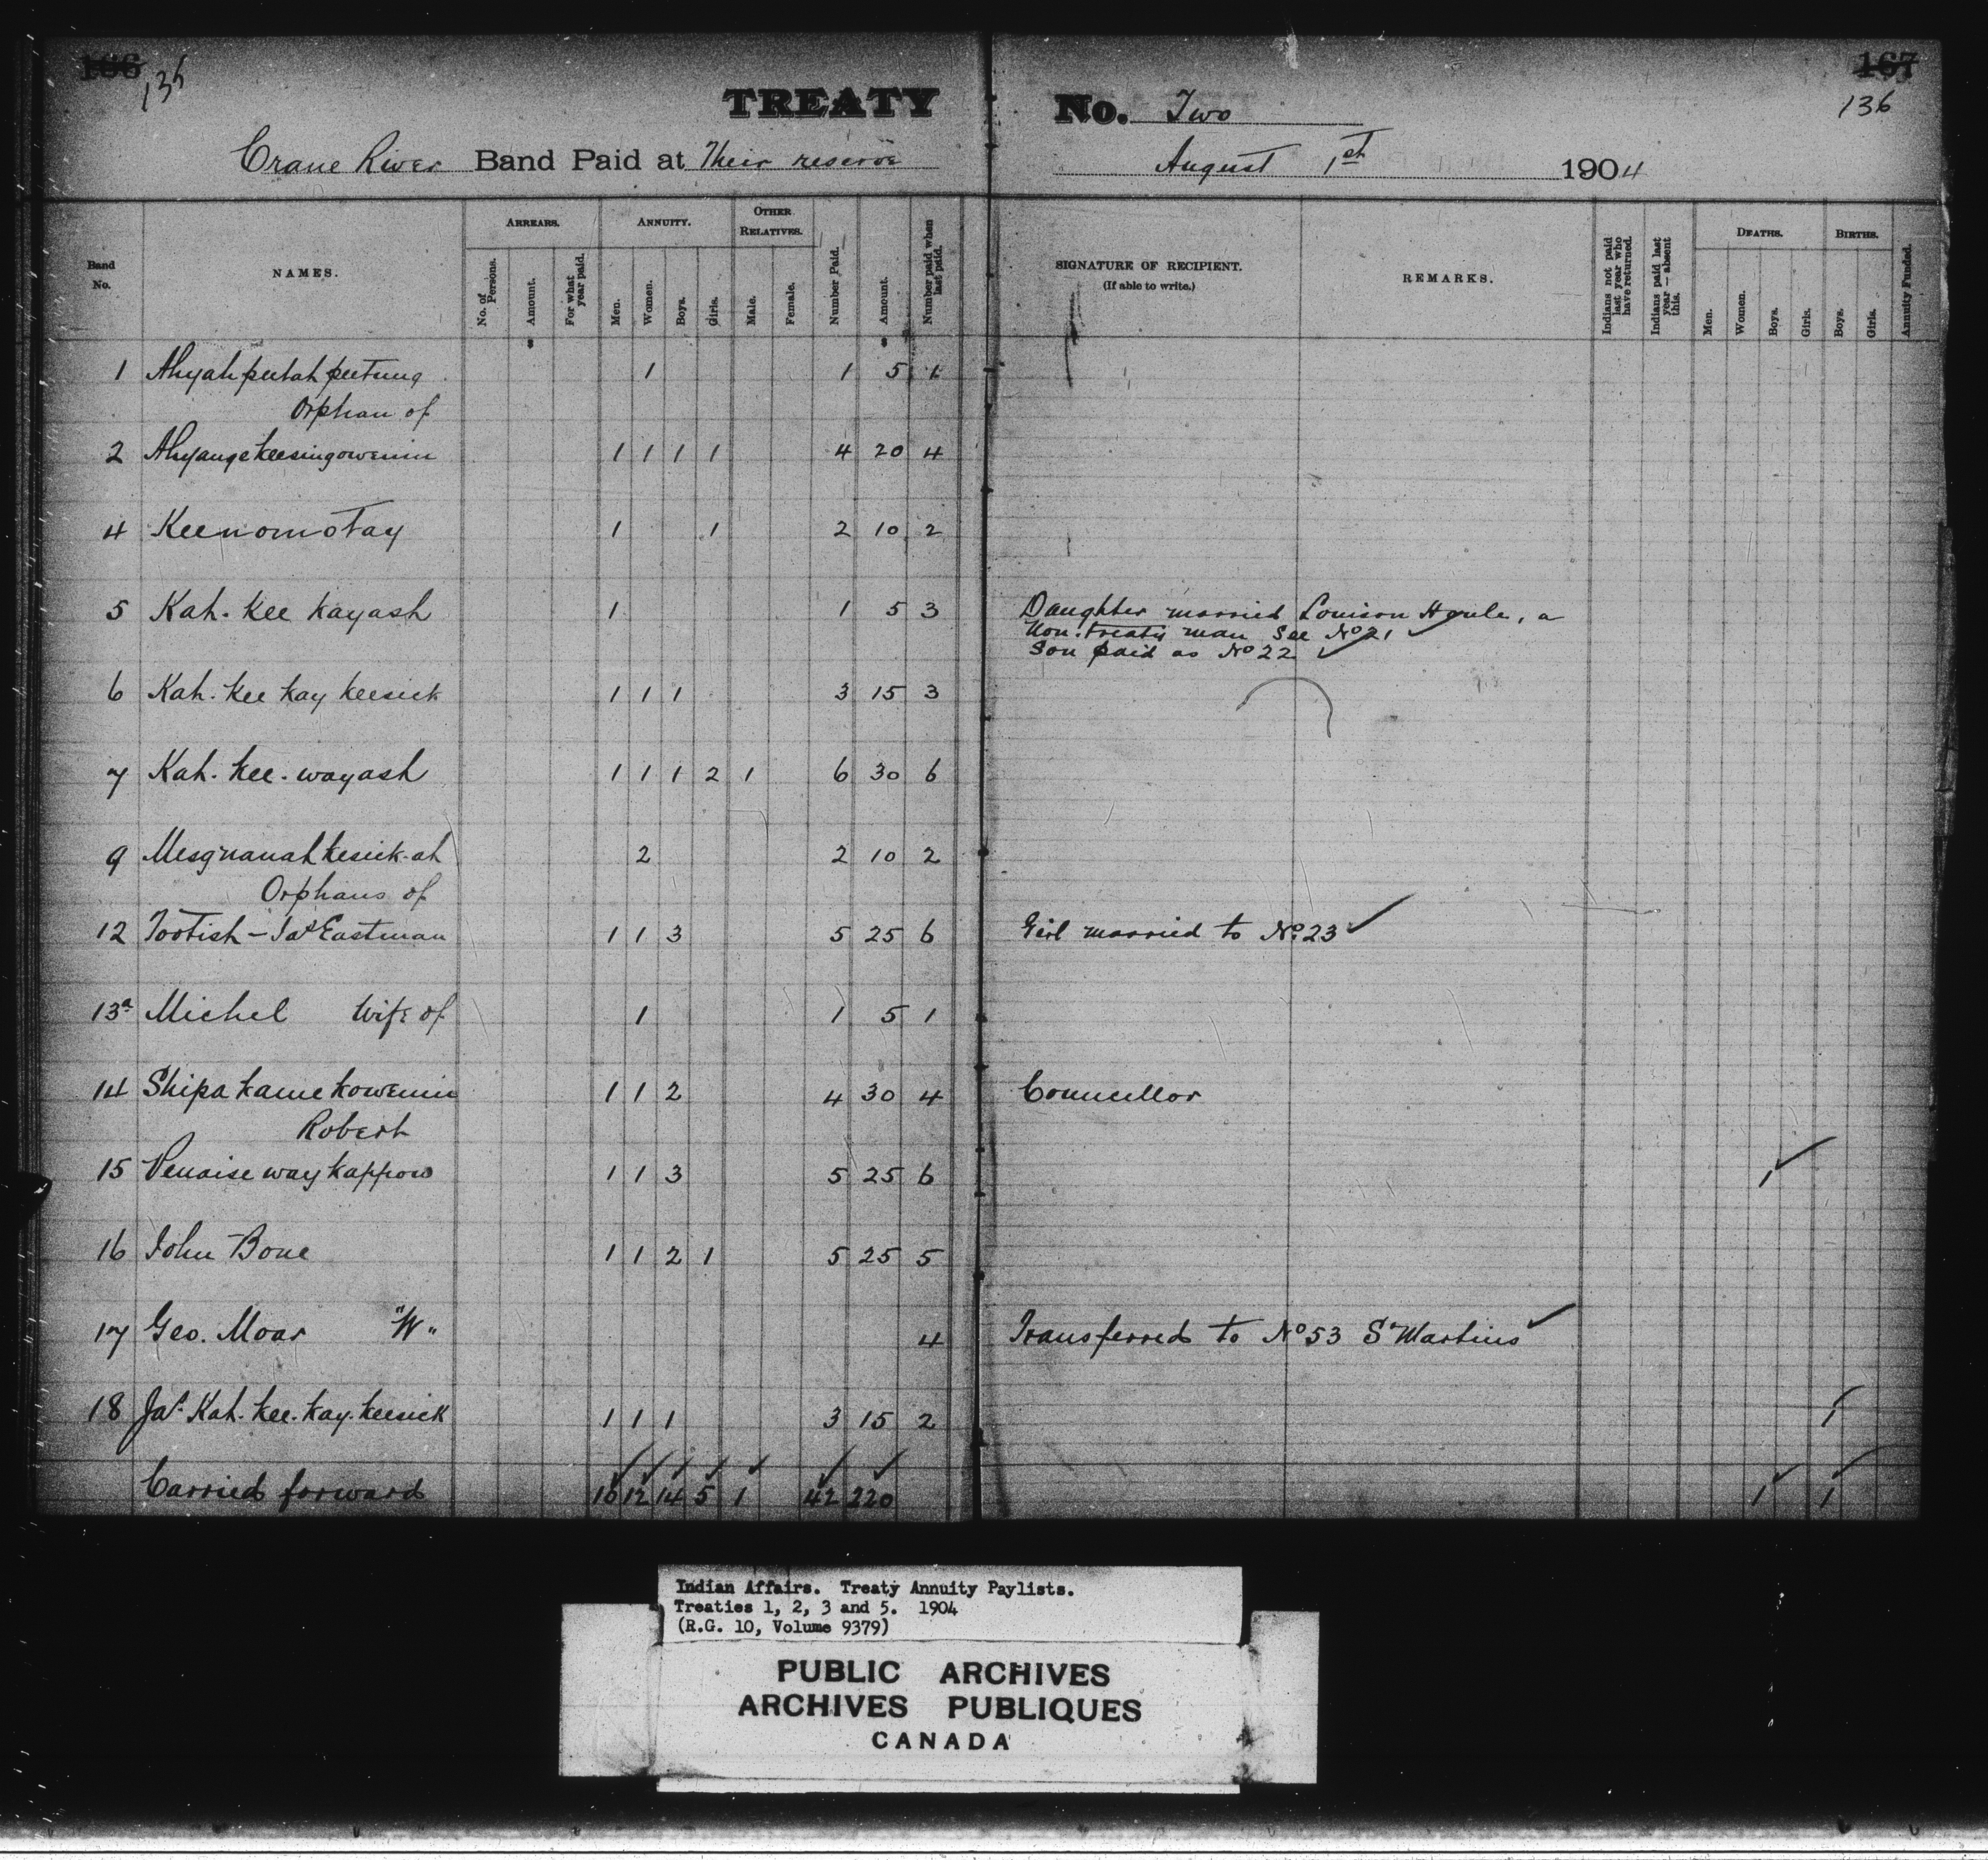 166 135 167 136
TREATY No. Two
Crane River Band Paid at Their reserve August 1st 1904
Band No. NAMES. ARREARS. ANNUITY. OTHER RELATIVES. Number Paid. Amount. Number paid when last paid. SIGNATURE OF RECIPIENT. (If able to write.) REMARKS. Indians not paid last year who have returned. Indians paid last year — absent this. DEATHS. BIRTHS. Annuity Funded.
No. of Persons. Amount. For what year paid. Men. Women. Boys. Girls. Male. Female. Men. Women. Boys. Girls. Boys. Girls.
1 1 1 5 1
Orphan of
2 Ahyangekeesingowenin 1 1 1 1 4 20 4
4 Keenomotay 1 1 2 10 2
5 Kah. Kee Kayash 1 1 5 3 Daughter married Louison Houle, a
Non. treaty man See No 21 ✓
Son paid as No 22 ✓
6 Kah. Kee Kay Keesick 1 1 1 3 15 3
7 Kah. Kee. wayash 1 1 1 2 1 6 30 6
9 Mesquanahkesick-ah 2 2 10 2
Orphans of
12 Tootish - Jas Eastman 1 1 3 5 25 6 Girl married to No. 23 ✓
13a Michel Wife of 1 1 5 1
14 Shipakamekowenin 1 1 2 4 30 4 Councillor
Robert
15 Penaisewaykappow 1 1 3 5 25 6 1 ✓
16 John Bone 1 1 2 1 5 25 5
17 Geo. Moar "W" 4 Transferred to No 53 St Martins ✓
18 Jas. Kah. Kee. Kay. Keesick 1 1 1 3 15 2 1
Carried forward 10 12 14 5 1 42 220 1 1
Indian Affairs. Treaty Annuity Paylists.
Treaties 1, 2, 3 and 5. 1904
(R.G. 10, Volume 9379)
PUBLIC ARCHIVES
ARCHIVES PUBLIQUES
CANADA